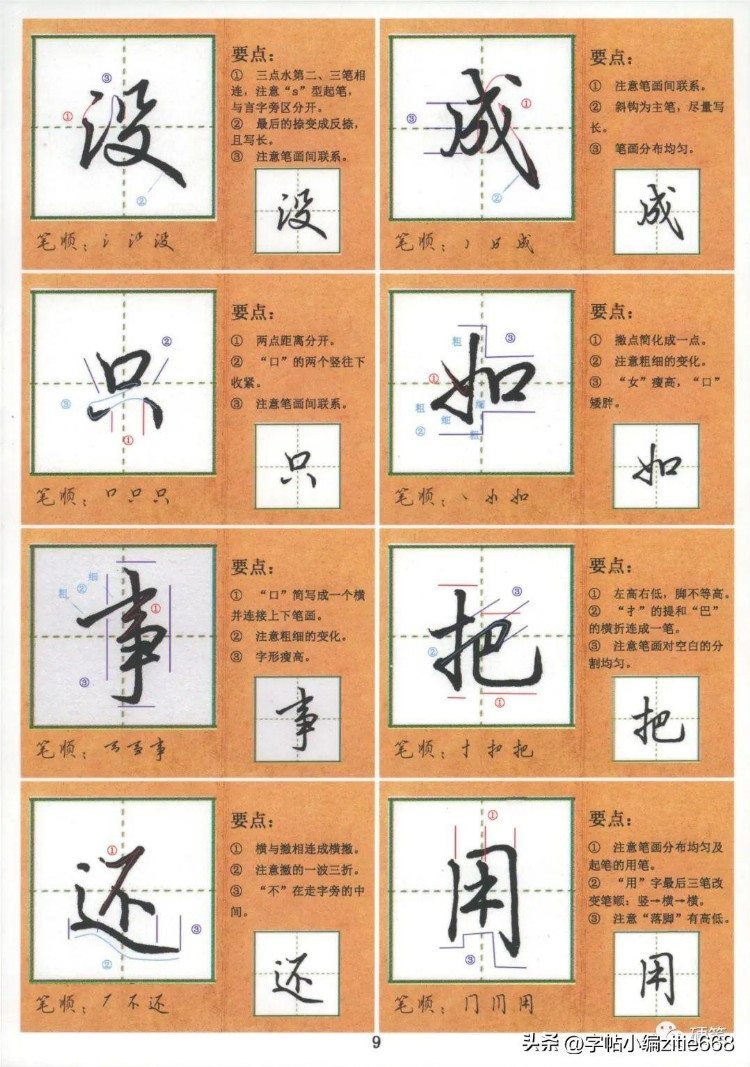 没
要点：
① 三点水第二、三笔相
连，注意“s”型起笔，
与言字旁区分开。
② 最后的捺变成反捺，
且写长。
③ 注意笔画间联系。
③
①
②
没
笔顺：氵 没
成
要点：
① 注意笔画间联系。
② 斜钩为主笔，尽量写
长。
③ 笔画分布均匀。
③
①
②
成
笔顺：成
只
要点：
① 两点距离分开。
② “口”的两个竖往下
收紧。
③ 注意笔画间联系。
②
③
①
只
笔顺：口 只 只
如
要点：
① 撇点简化成一点。
② 注意粗细的变化。
③ “女”瘦高，“口”
矮胖。
粗
③
①
粗 细
细
② 粗 粗
如
笔顺：丶 如 如
事
要点：
① “口”简写成一个横
并连接上下笔画。
② 注意粗细的变化。
③ 字形瘦高。
细
粗 ②
①
③
事
笔顺：事
把
要点：
① 左高右低，脚不等高。
② “扌”的提和“巴”
的横折连成一笔。
③ 注意笔画对空白的分
割均匀。
③
②
①
把
笔顺：扌 扣 把
还
要点：
① 横与撇相连成横撇。
② 注意撇的一波三折。
③ “不”在走字旁的中
间。
①
③
②
还
笔顺：不 还
用
要点：
① 注意笔画分布均匀及
起笔的用笔。
② “用”字最后三笔改
变笔顺：竖→横→横。
③ 注意“落脚”有高低。
①
③
用
笔顺：冂 用
9
头条@字帖小编zitie668